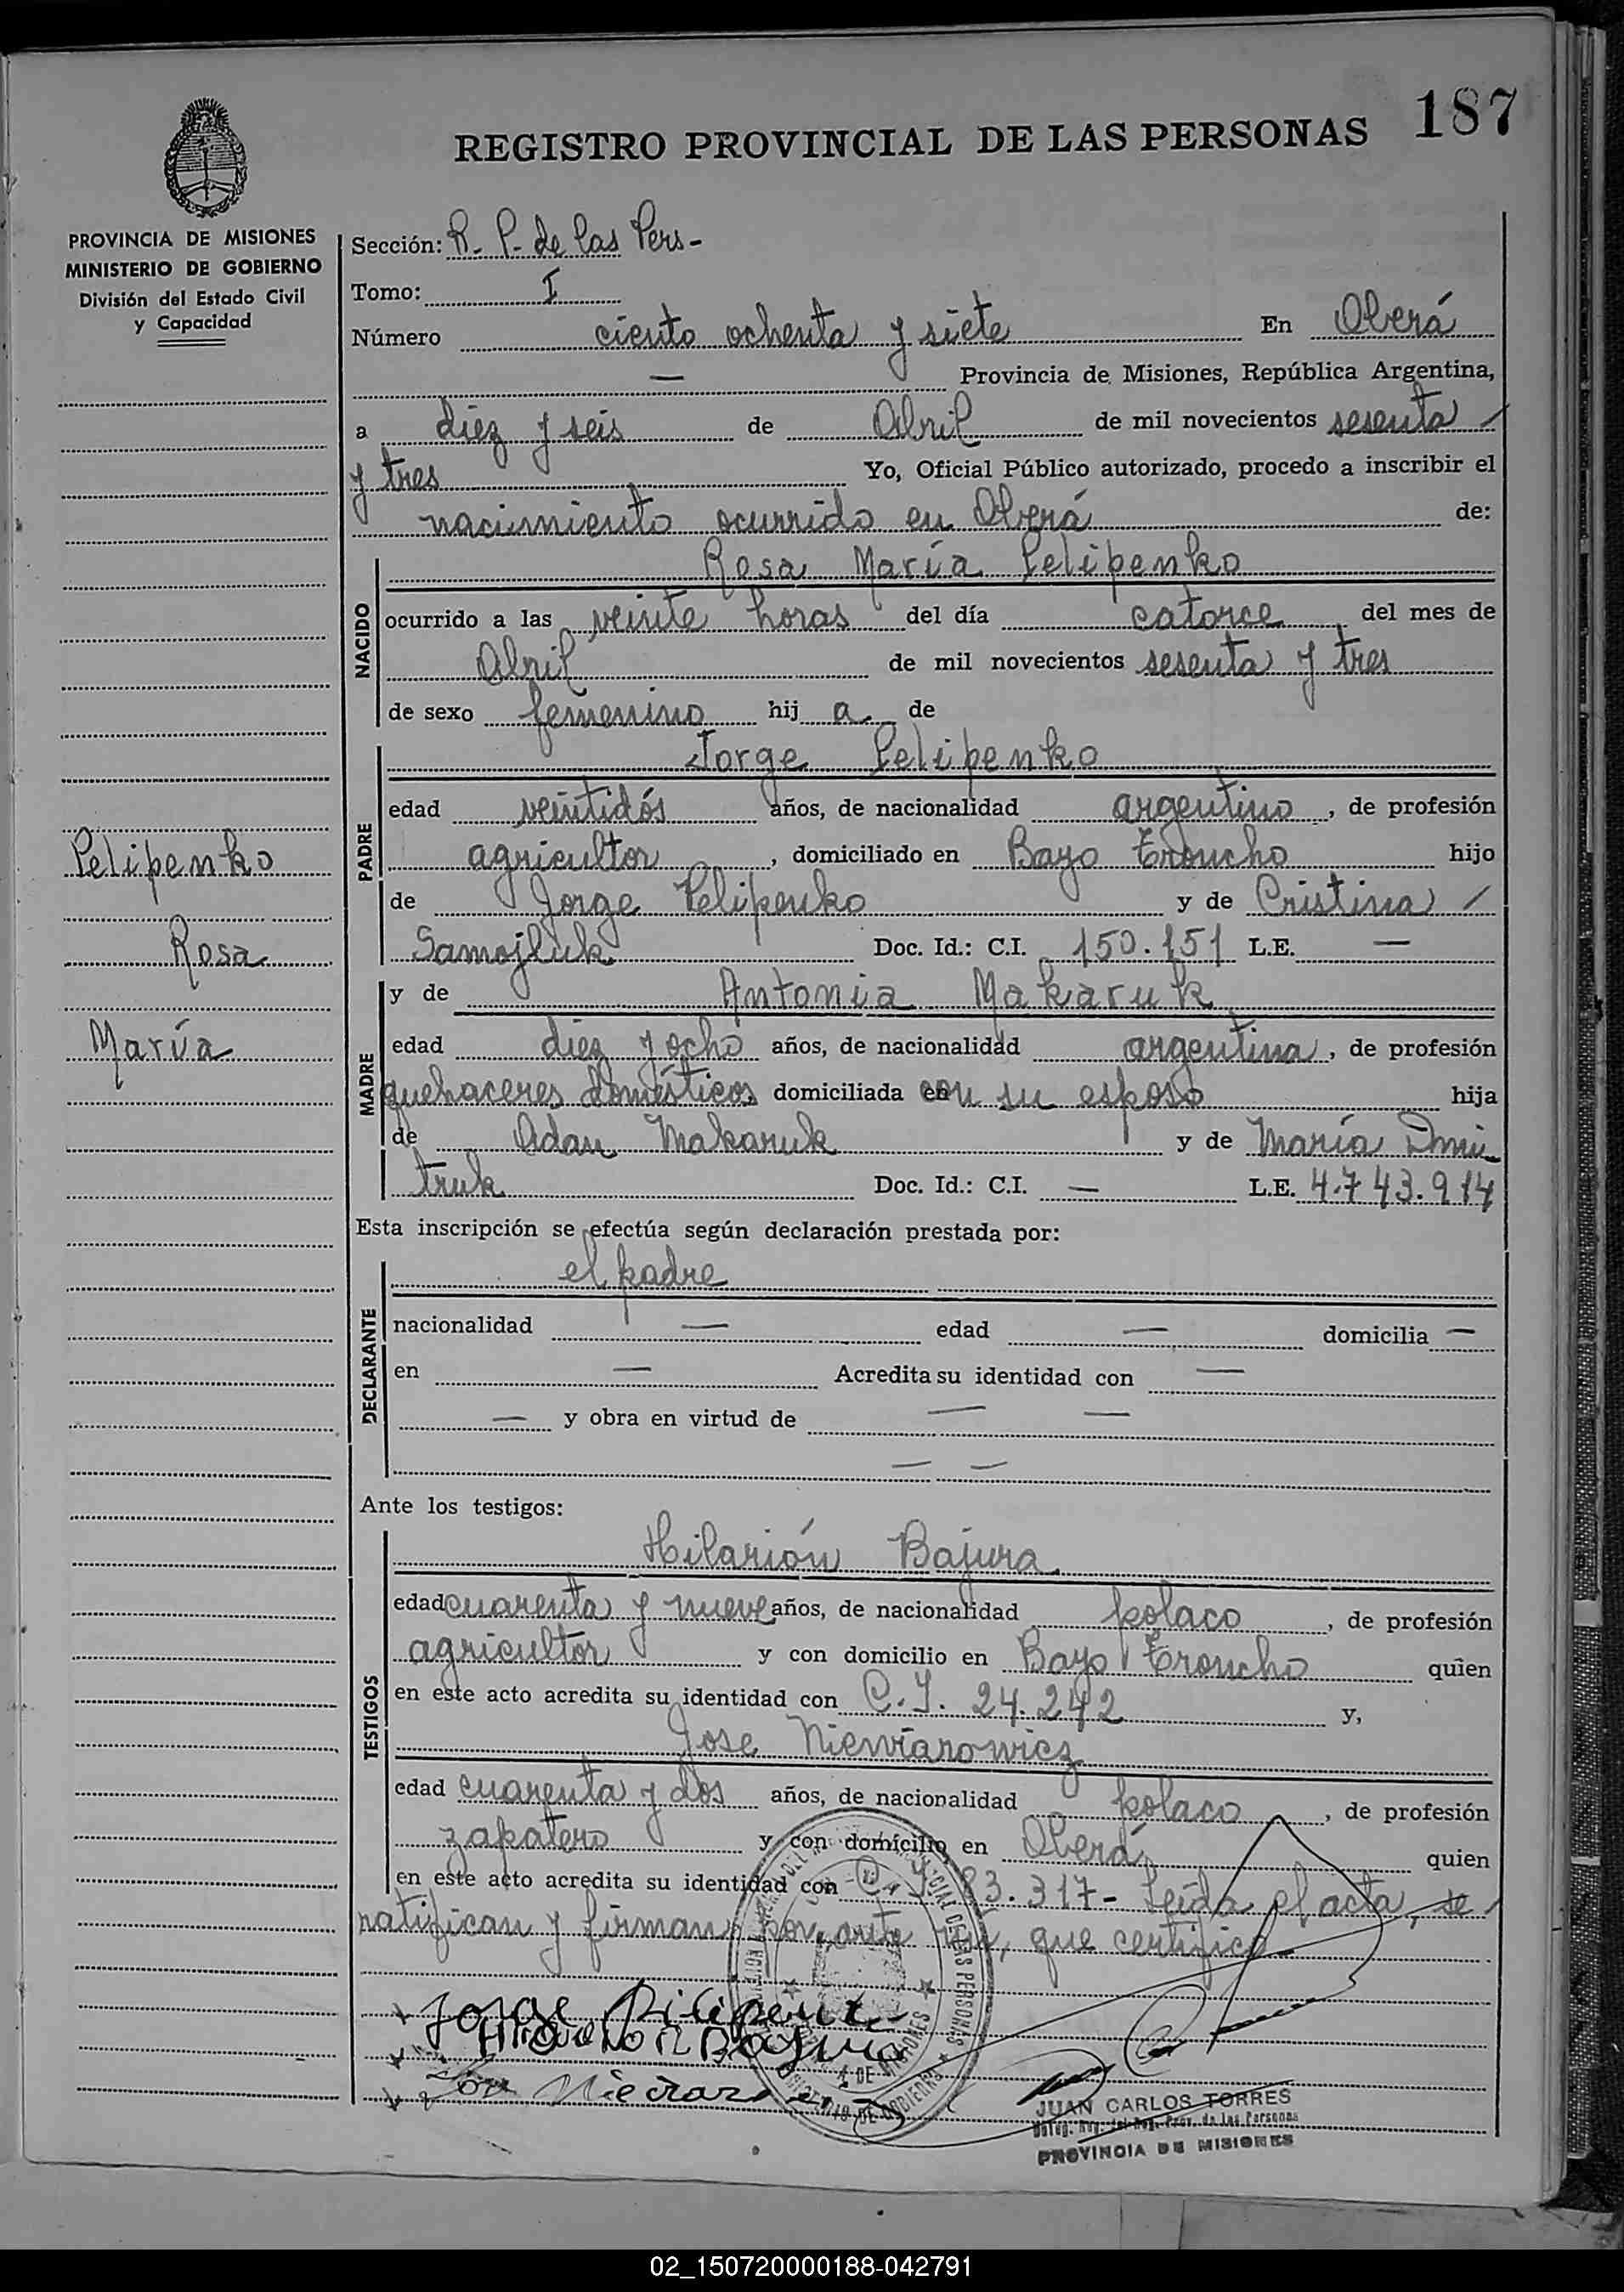 187
REGISTRO PROVINCIAL DE LAS PERSONAS
PROVINCIA DE MISIONES
MINISTERIO DE GOBIERNO
División del Estado Civil
y Capacidad
Sección: R. P. de las Pers-
Tomo: I
Número ciento ochenta y siete En Oberá
— Provincia de Misiones, República Argentina,
a diez y seis de Abril de mil novecientos sesenta
y tres Yo, Oficial Público autorizado, procedo a inscribir el
nacimiento ocurrido en Oberá de:
NACIDO
Rosa María Pelipenko
ocurrido a las veinte horas del día catorce del mes de
Abril de mil novecientos sesenta y tres
de sexo femenino hij a de
PADRE
Jorge Pelipenko
edad veintidós años, de nacionalidad argentino, de profesión
agricultor, domiciliado en Bayo Troncho hijo
de Jorge Pelipenko y de Cristina
Samojluk Doc. Id.: C.I. 150.151 L.E. —
Pelipenko
Rosa
María
MADRE
y de Antonia Makaruk
edad diez y ocho años, de nacionalidad argentina, de profesión
quehaceres domésticos domiciliada en con su esposo hija
de Adan Makaruk y de María Dmi
truk Doc. Id.: C.I. — L.E. 4.743.914
Esta inscripción se efectúa según declaración prestada por:
DECLARANTE
el padre
nacionalidad — edad — domicilia —
en — Acredita su identidad con —
— y obra en virtud de — —
— —
Ante los testigos:
TESTIGOS
Hilarión Bajura
edad cuarenta y nueve años, de nacionalidad polaco, de profesión
agricultor y con domicilio en Bayo Troncho quien
en este acto acredita su identidad con C.I. 24.242 y,
Jose Niewiarowicz
edad cuarenta y dos años, de nacionalidad polaco, de profesión
zapatero y con domicilio en Oberá quien
en este acto acredita su identidad con 83.317- Leída el acta, se
ratifican y firman por ante mí, que certifico
Jorge
Bajura
JUAN CARLOS TORRES
PROVINCIA DE MISIONES
02_150720000188-042791